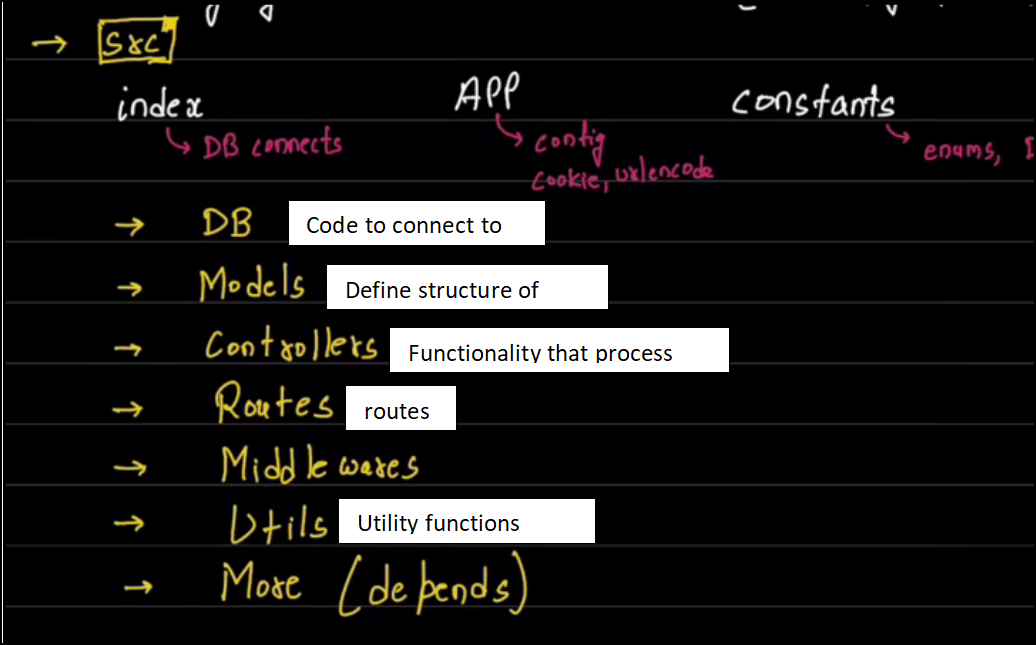 → src
index APP constants
↳ DB connects ↳ config ↳ enums,
cookie, urlencode
→ DB Code to connect to
→ Models Define structure of
→ Controllers Functionality that process
→ Routes routes
→ Middlewares
→ Utils Utility functions
→ More (depends)